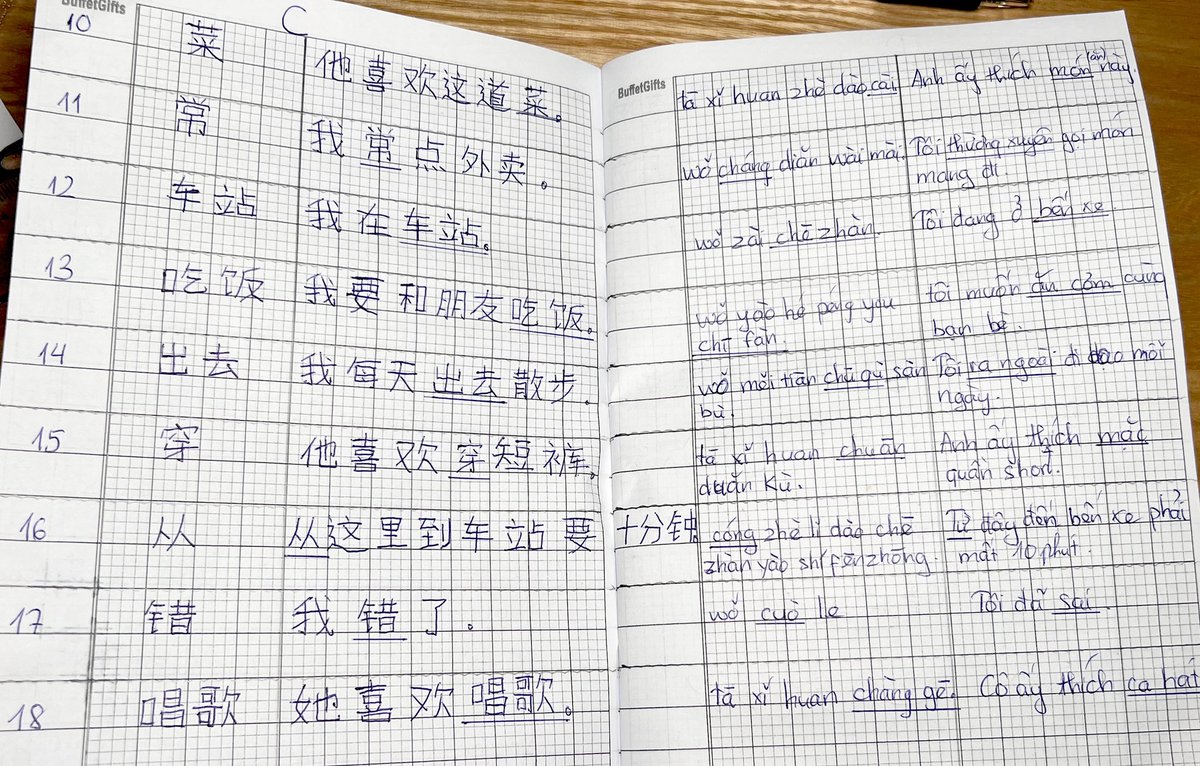 BuffetGifts
C
10 菜 他喜欢这道菜。
11 常 我常点外卖。
12 车站 我在车站。
13 吃饭 我要和朋友吃饭。
14 出去 我每天出去散步。
15 穿 他喜欢穿短裤。
16 从 从这里到车站要十分钟
17 错 我错了.
18 唱歌 她喜欢唱歌。
BuffetGifts
tā xǐ huan zhè dào cài. Anh ấy thích món (ăn) này.
wǒ cháng diǎn wài mài. Tôi thường xuyên gọi món
mang đi.
wǒ zài chē zhàn. Tôi đang ở bến xe.
wǒ yào hé péng you tôi muốn ăn cơm cùng
chī fàn. bạn bè.
wǒ měi tiān chū qù sàn Tôi ra ngoài đi dạo mỗi
bù. ngày.
tā xǐ huan chuān Anh ấy thích mặc
duǎn kù. quần short.
cóng zhè lǐ dào chē Từ đây đến bến xe phải
zhàn yào shí fēn zhōng. mất 10 phút.
wǒ cuò le Tôi đã sai.
tā xǐ huan chàng gē. Cô ấy thích ca hát